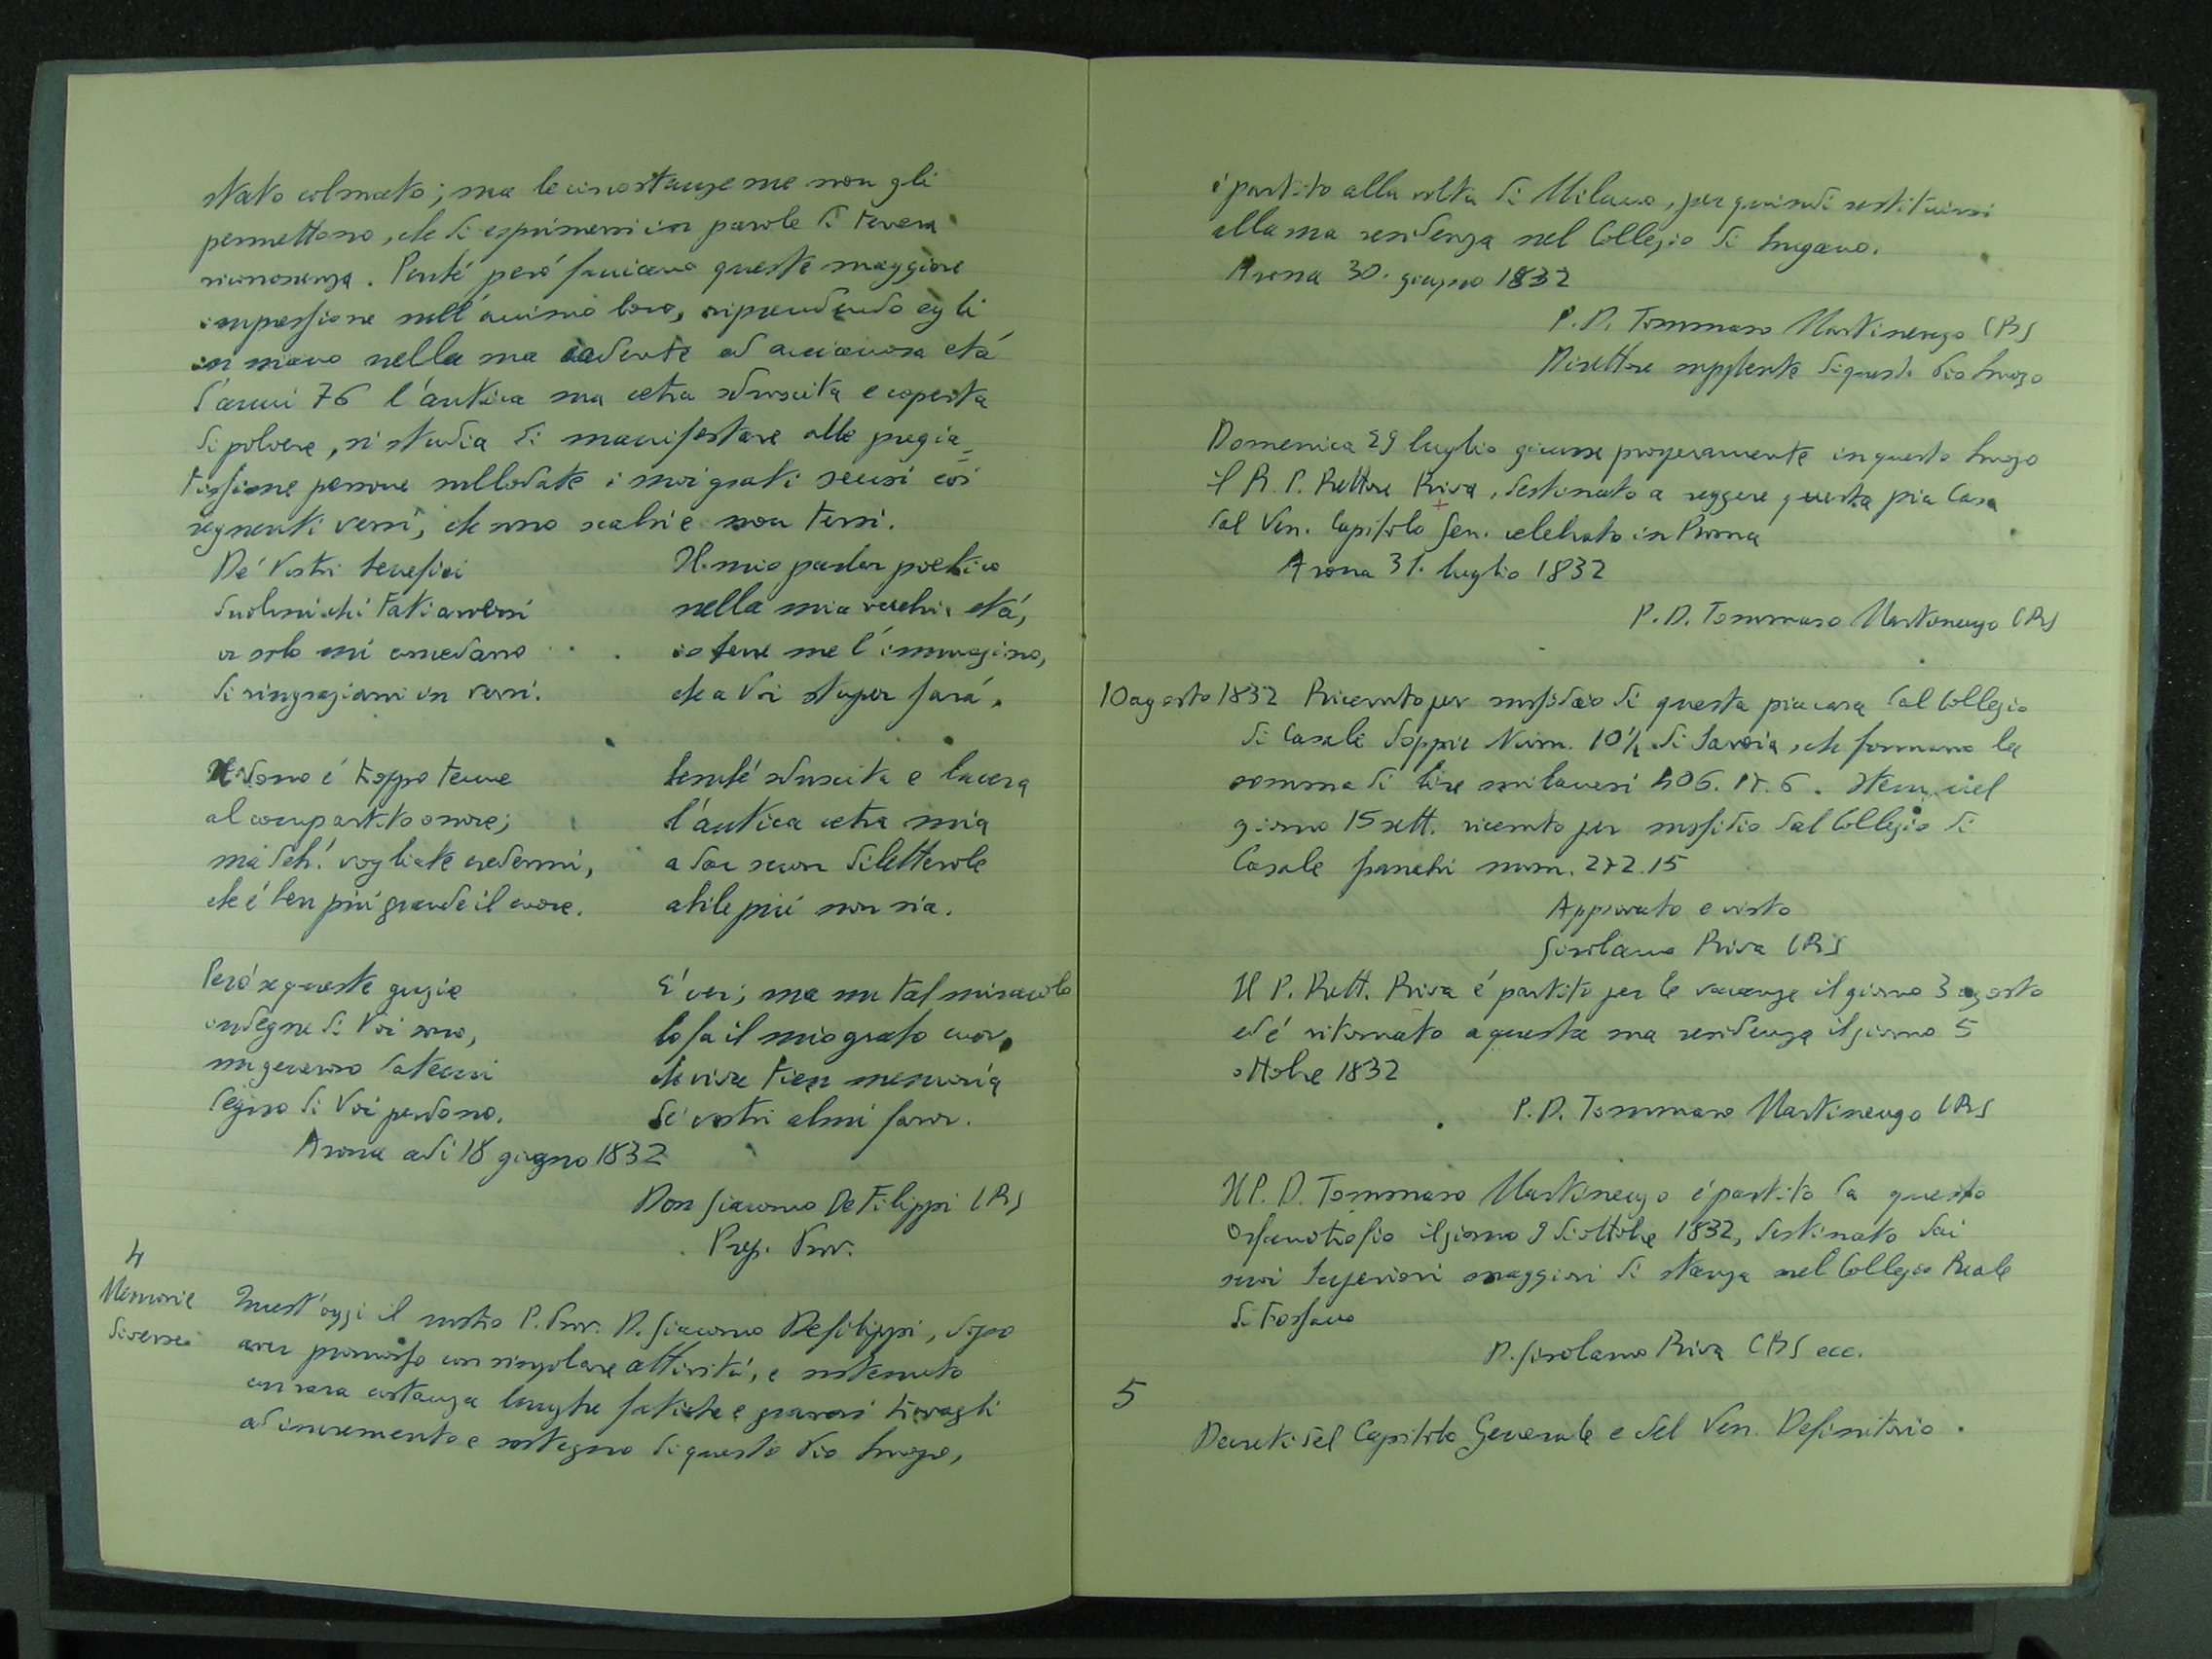 stato colmato; ma le circostanze sue non gli
permettono, che di esprimersi in parole di tenera
riconoscenza. Perché però facciano queste maggiore
impressione nell'animo loro, riprendendo egli
in mano nella sua cadente ed accianosa età
d'anni 76 l'antica sua cetra sdruscita e coperta
di polvere, si studia di manifestare alle pregia=
tissime persone sullodate i suoi grati sensi coi
seguenti versi, che sono scabri e non tersi.
De' Vostri benefici
or solo mi concedano
di ringraziarvi in versi.
Il dono è troppo tenue
al compartito onore;
ma deh! vogliate credermi,
che è ben più grande il cuore.
Però se queste grazie
indegne di Voi sono,
un generoso datemi
degno di Voi perdono.
Il mio parlar poetico
nella mia vecchia età,
io bene me l'immagino,
che a Voi stupor farà,
benché sdruscita e lacera
l'antica cetra mia
a dar suon dilettevole
abile più non sia.
E' ver; ma un tal miracolo
lo fa il mio grato cuor,
che viva tien memoria
de' vostri almi favor.
Arona adì 18 giugno 1832
Don Giacomo De Filippi CRS
Prep. Prov.
4
Memorie
diverse
Quest'oggi il nostro P. Prov. D. Giacomo Defilippi, dopo
aver promosso con singolare attività, e sostenuto
con rara costanza lunghe fatiche e gravosi travagli
ad incremento e sostegno di questo Pio Luogo,
è partito alla volta di Milano, per quindi restituirsi
alla sua residenza nel Collegio di Lugano.
Arona 30. giugno 1832
P. D. Tommaso Martinengo CRS
Direttore supplente di questo Pio Luogo
Domenica 29 luglio giunse prosperamente in questo Luogo
il R. P. Rettore Riva, destinato a reggere questa pia Casa
dal Ven. Capitolo Gen. celebrato in Roma
Arona 31. luglio 1832
P. D. Tommaso Martinengo CRS
10 agosto 1832 Ricevuto per sussidio di questa pia casa dal Collegio
di Casale doppie Num. 10½ di Savoia, che formano la
somma di lire milanesi 406. 17. 6. Item nel
giorno 15 sett. ricevuto per sussidio dal Collegio di
Casale franchi num. 272.15
Approvato e visto
Girolamo Riva CRS
Il P. Rett. Riva è partito per le vacanze il giorno 3 agosto
ed è ritornato a questa sua residenza il giorno 5
ottobre 1832
P. D. Tommaso Martinengo CRS
Il P. D. Tommaso Martinengo è partito da questo
Orfanotrofio il giorno 9 di ottobre 1832, destinato dai
suoi Superiori maggiori di stanza nel Collegio Reale
di Fossano
D. Girolamo Riva CRS ecc.
5
Decreti del Capitolo Generale e del Ven. Definitorio.